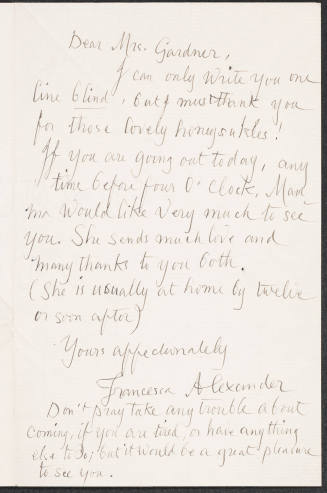 Dear Mrs. Gardner,
I can only write you one
line blind, but I must thank you
for those lovely honeysukles!
If you are going out today, any
time before four O' Clock, Mam
ma would like very much to see
you. She sends much love and
many thanks to you both.
(She is usually at home by twelve
or soon after)
Yours affectionately
Francesca Alexander
Don't pray take any trouble about
coming, if you are tired, or have anything
else to do; but it would be a great pleasure
to see you.